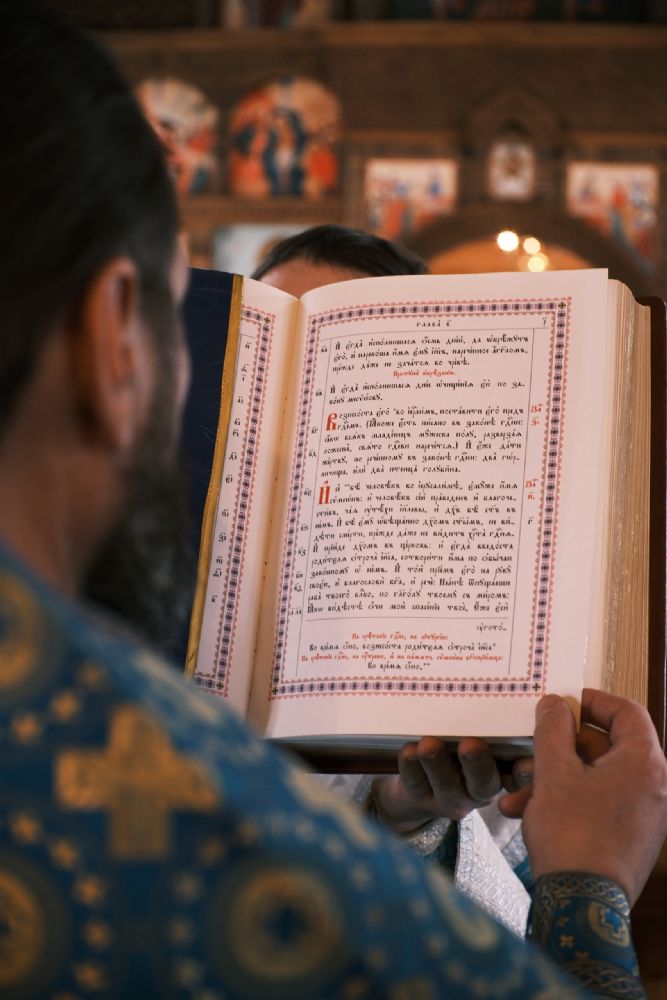 глава в҃
И҆ є҆гда̀ и҆спо́лнишасѧ ѻ҆́смь дні́й, да ѡ҆брѣ́жꙋтъ
є҆го̀, и҆ нареко́ша и҆́мѧ є҆мꙋ̀ і҆и҃съ, нарече́нное а҆́гг҃ломъ,
пре́жде да́же не зача́тсѧ во чре́вѣ.
ѡ҆брѣ́занїю.
И҆ є҆гда̀ и҆спо́лнишасѧ дні́е ѡ҆чище́нїѧ є҆ю̀ по за-
ко́нꙋ мѡѷсе́овꙋ,
Вознесо́ста є҆го̀ во і҆ерⷭ҇ли́мъ, поста́вити є҆го̀ пред̾
гдⷭ҇емъ, (ꙗ҆́коже є҆́сть пи́сано въ зако́нѣ гдⷭ҇ни:
ꙗ҆́кѡ всѧ́къ младе́нецъ мꙋ́жеска по́лꙋ, разверза́ѧ
ложесна̀, ст҃о гдⷭ҇еви нарече́тсѧ.) И҆ є҆́же да́ти
же́ртвꙋ, по рече́нномꙋ въ зако́нѣ гдⷭ҇ни: два̀ го́р-
личища, и҆лѝ два̀ птенца̑ голꙋби̑на.
И҆ сѐ, бѣ̀ человѣ́къ во і҆ерⷭ҇ли́мѣ, є҆мꙋ́же и҆́мѧ
сѷмеѡ́нъ: и҆ человѣ́къ се́й првⷣнъ и҆ благоче-
сти́въ, ча́ѧ ᲂу҆тѣ́хи і҆и҃левы: и҆ дх҃ъ бѣ̀ ст҃ъ въ
не́мъ. И҆ бѣ̀ є҆мꙋ̀ ѡ҆бѣща́но дх҃омъ ст҃ы́мъ, не ви́-
дѣти сме́рти, пре́жде да́же не ви́дитъ хрⷭ҇та̀ гдⷭ҇нѧ.
И҆ прїи́де дꙋ́хомъ въ це́рковь: и҆ є҆гда̀ введо́ста
роди́телѧ ѻ҆троча̀ і҆и҃са, сотвори́ти и҆́ма по ѡ҆бы́чаю
зако́нномꙋ ѡ҆ не́мъ. И҆ то́й прїе́мъ є҆го̀ на рꙋкꙋ̀
своє́ю, и҆ благословѝ бг҃а, и҆ речѐ: Нн҃ѣ ѿпꙋща́еши
раба̀ твоего̀ влⷣко, по гл҃го́лꙋ твоемꙋ̀ съ ми́ромъ:
Ꙗ҆́кѡ ви́дѣстѣ ѻ҆́чи моѝ спⷭ҇нїе твоѐ, Є҆́же є҆сѝ
ᲂу҆гото-
На срѣ́тенїе гдⷭ҇не, на лїтꙋргі́и:
Во вре́мѧ ѻ҆́но, вознесо́ста роди́телѧ ѻ҆троча̀ і҆и҃са
На срѣ́тенїе гдⷭ҇не, на ᲂу҆́трени, и҆ на па́мѧть сѷмеѡ́на бг҃опрїи́мца:
Во вре́мѧ ѻ҆́но.